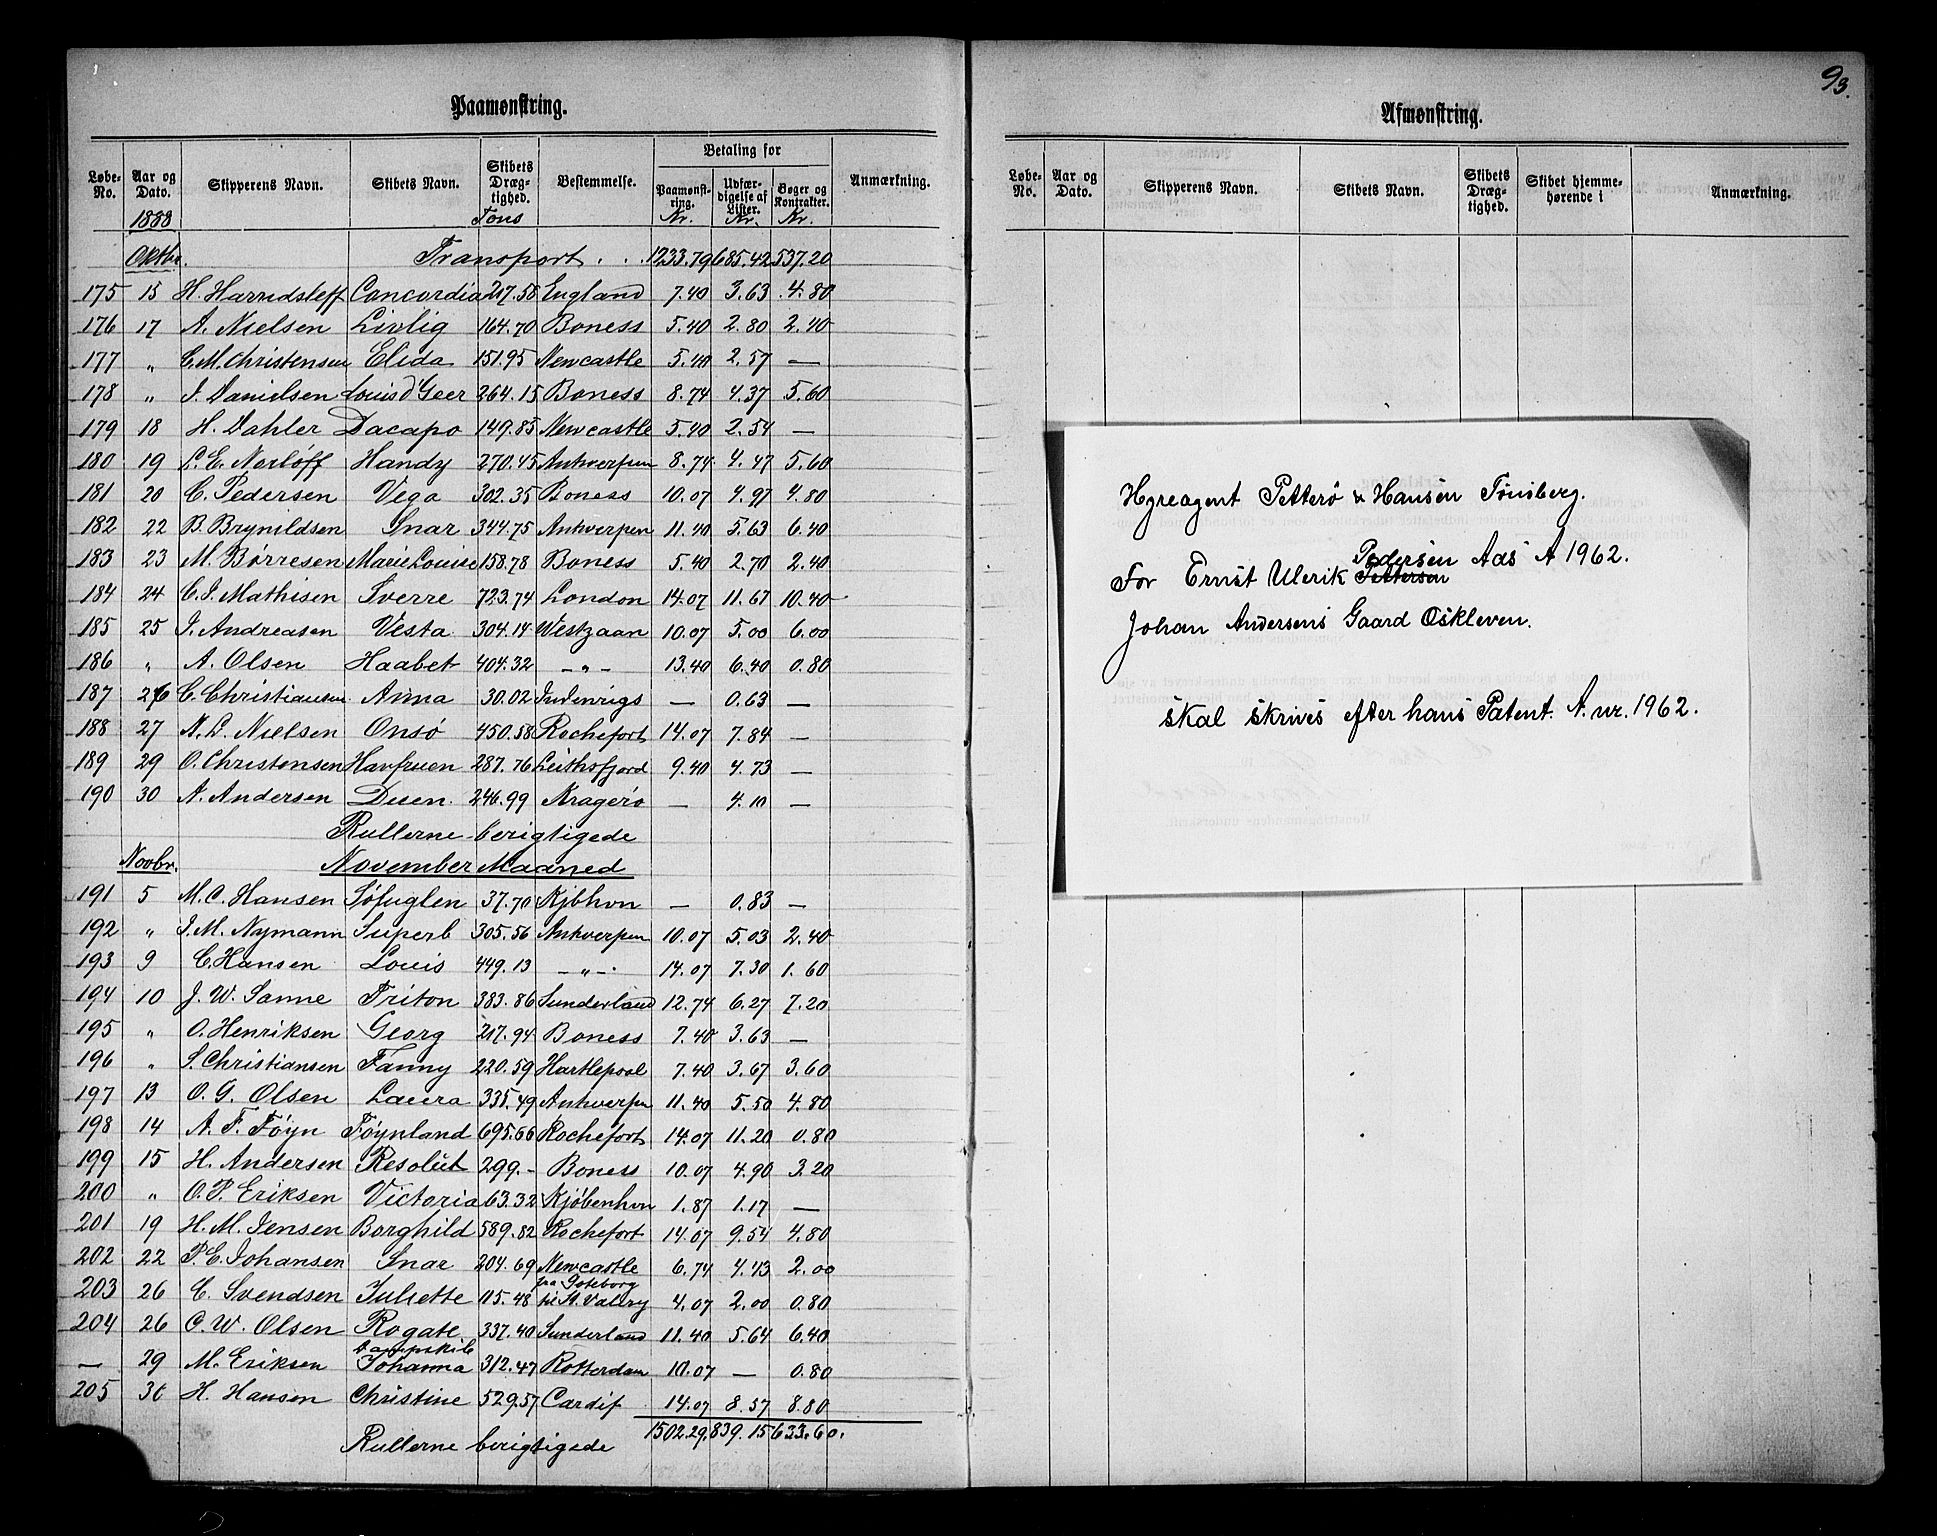 Paamønstring.
Løbe-No. | Aar og Dato. | Skipperens Navn. | Skibets Navn. | Skibets Dræg-tighed. | Bestemmelse. | Betaling for | Anmærkning.
Paamønst-ring. | Udfær-digelse af Lister. | Bøger og Kontrakter.
1888 Tons Kr. Kr. Kr.
Oktbr. Transport . . 1233.79 685.42 537.20
175 15 H. Harridsleff Concordia 217.58 England 7.40 3.63 4.80
176 17 A. Nielsen Livlig 164.70 Boness 5.40 2.80 2.40
177 " C. M. Christensen Elida 151.95 Newcastle 5.40 2.57 —
178 " J. Danielsen Louis d'Geer 264.15 Boness 8.74 4.37 5.60
179 18 H. Dahler Dacapo 149.85 Newcastle 5.40 2.54 —
180 19 L. E. Nerløff Handy 270.45 Antverpen 8.74 4.47 5.60
181 20 C. Pedersen Vega 302.35 Boness 10.07 4.97 4.80
182 22 B. Brynildsen Snar 344.75 Antverpen 11.40 5.63 6.40
183 23 M. Børresen Marie Louise 158.78 Boness 5.40 2.70 2.40
184 24 C. J. Mathisen Sverre 723.74 London 14.07 11.67 10.40
185 25 J. Andreasen Vesta 304.14 Westzaan 10.07 5.00 6.00
186 " A. Olsen Haabet 404.32 — " — 13.40 6.40 0.80
187 26 C. Christiansen Anna 30.02 Indenrigs — 0.63 —
188 27 N. L. Nielsen Onsø 450.58 Rochefort 14.07 7.84 —
189 29 O. Christensen Havfruen 287.76 Leithsfjord 9.40 4.73 —
190 30 N. Andersen Disen 246.99 Kragerø — 4.10 —
Rullerne berigtigede
Novbr. November Maaned
191 5 M. C. Hansen Søfuglen 37.70 Kjbhvn — 0.83 —
192 " J. M. Nymann Superb 305.56 Antverpen 10.07 5.03 2.40
193 9 C. Hansen Louis 449.13 — " — 14.07 7.30 1.60
194 10 J. W. Sanne Triton 383.86 Sunderland 12.74 6.27 7.20
195 " O. Henriksen Georg 217.94 Boness 7.40 3.63 —
196 " S. Christiansen Fanny 220.59 Hartlepool 7.40 3.67 3.60
197 13 O. G. Olsen Laura 335.49 Antverpen 11.40 5.50 4.80
198 14 A. F. Føyn Føynland 695.66 Rochefort 14.07 11.20 0.80
199 15 H. Andersen Resolut 299.- Boness 10.07 4.90 3.20
200 " O. P. Eriksen Victoria 63.32 Kjøbenhvn 1.87 1.17 —
201 19 H. M. Jensen Borghild 589.82 Rochefort 14.07 9.54 4.80
202 22 P. E. Johansen Snar 204.69 Newcastle 6.74 4.43 2.00
203 26 C. Svendsen Juliette 115.48 fra Gøteborg til St. Valery 4.07 2.00 0.80
204 26 C. W. Olsen Rogate 337.40 Sunderland 11.40 5.64 6.40
— 29 M. Eriksen Dampskib Johanna 312.47 Rotterdam 10.07 — 0.80
205 30 H. Hansen Christine 529.57 Cardif 14.07 8.57 8.80
1502.29. 839.15 633.60.
Rullerne berigtigede
93.
Afmønstring.
Løbe-No. | Aar og Dato. | Skipperens Navn. | Skibets Navn. | Skibets Dræg-tighed. | Skibet hjemme-hørende i | Anmærkning.
Hyreagent Petterø & Hansen Tønsberg.
For Ernst Ulerik Pettersen Pedersen Aas A 1962.
Johan Andersens Gaard Oskleven.
skal skrives efter hans Patent. A. nr. 1962.